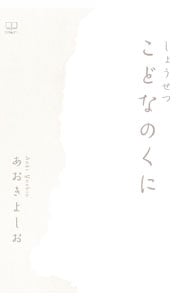 しょうせつ
こどなのくに
あおきよしお